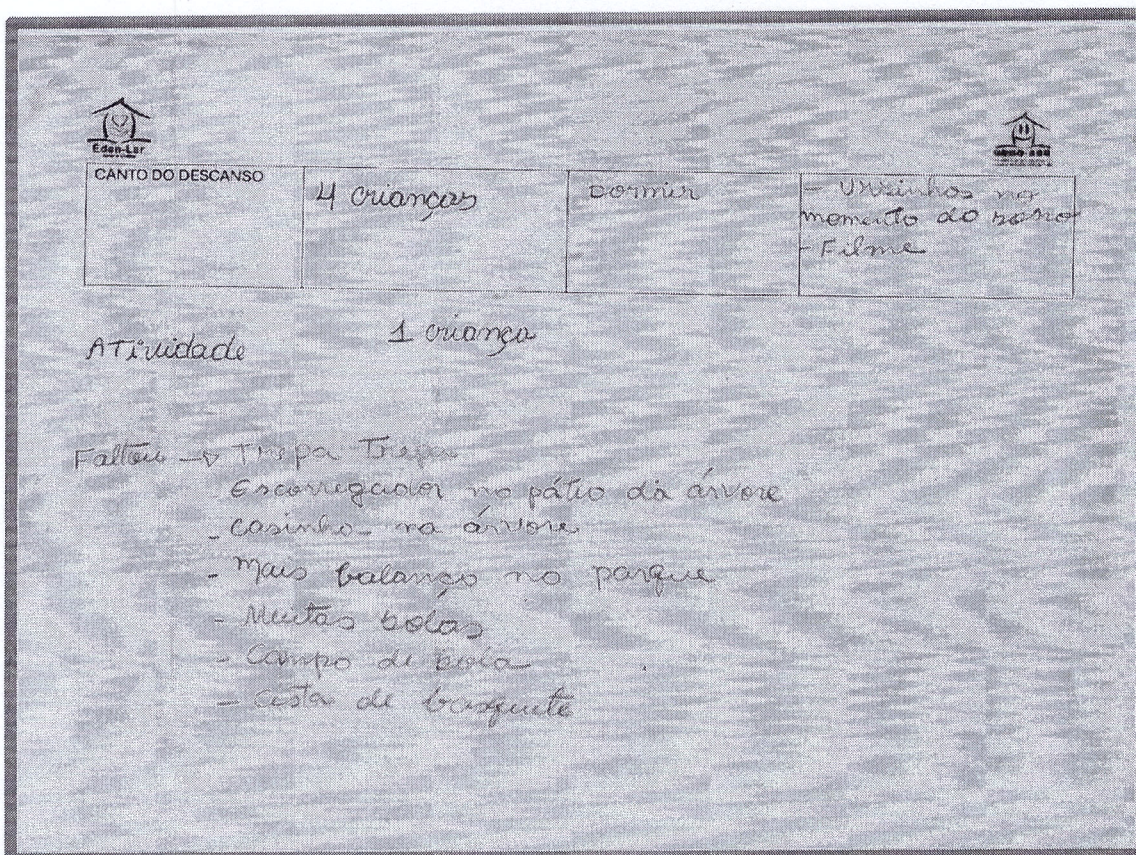 Eden-Lar
CANTO DO DESCANSO
4 crianças
Dormir
- Ursinhos no
momento do sono
- Filme
Atividade
1 criança
Faltou → Trepa Trepa
Escorregador no pátio da árvore
- casinha na árvore
- Mais balanço no parque
- Muitas bolas
- Campo de bola
- Cesta de basquete